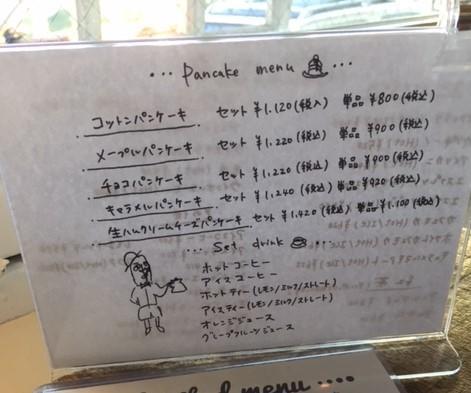 ... pancake menu ...
コットンパンケーキ セット ¥1.120(税込) 単品 ¥800(税込)
メープルパンケーキ セット ¥1.220(税込) 単品 ¥900(税込)
チョコパンケーキ セット ¥1.220(税込) 単品 ¥900(税込)
キャラメルパンケーキ セット ¥1.240(税込) 単品 ¥920(税込)
生ハムクリームチーズパンケーキ セット ¥1.420(税込) 単品 ¥1.100(税込)
... Set drink ...
ホットコーヒー
アイスコーヒー
ホットティー(レモン/ミルク/ストレート)
アイスティー(レモン/ミルク/ストレート)
オレンジジュース
グレープフルーツジュース
menu ....